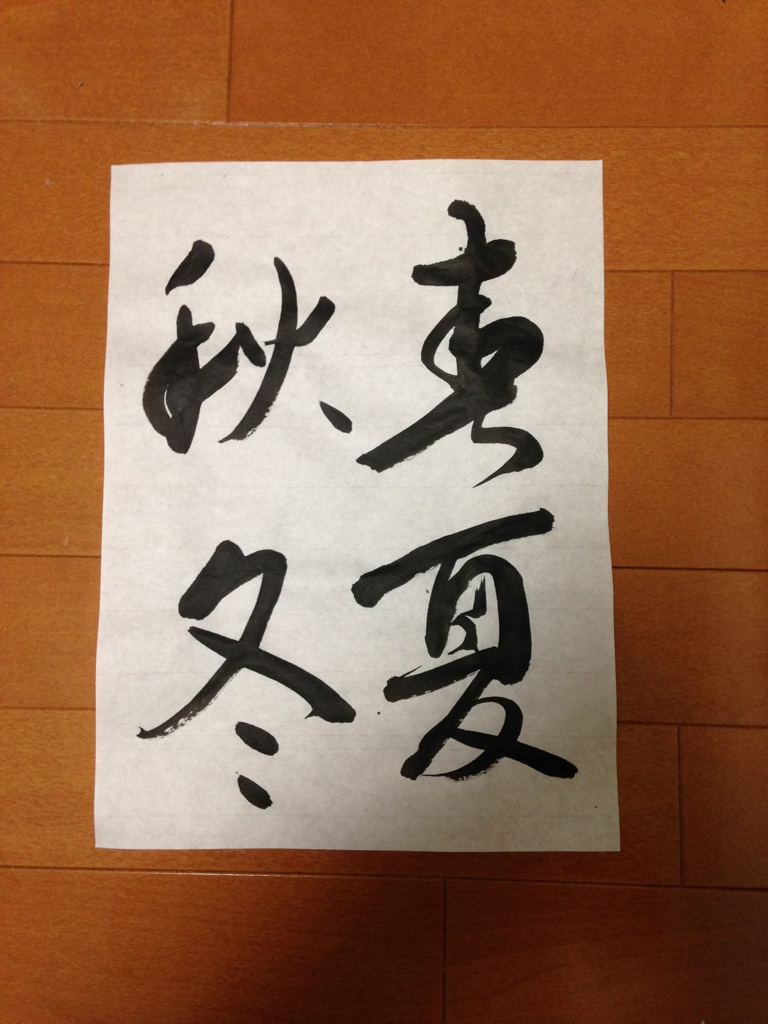 春夏
秋冬